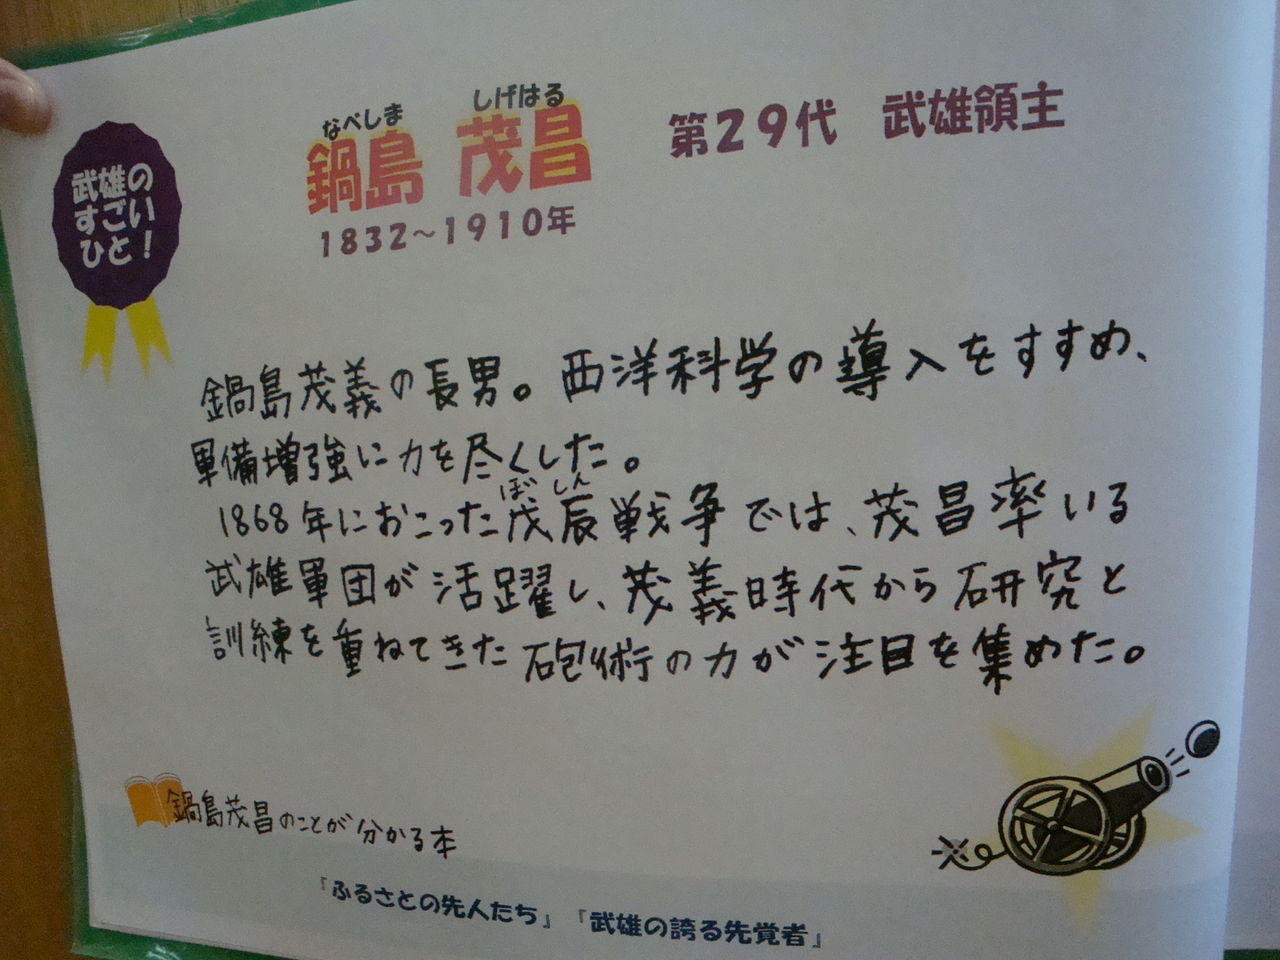 武雄の
すごい
ひと！
なべしま しげはる
鍋島 茂昌
1832～1910年
第29代 武雄領主
鍋島茂義の長男。西洋科学の導入をすすめ、
軍備増強に力を尽くした。
ぼ しん
1868年におこった戊辰戦争では、茂昌率いる
武雄軍団が活躍し、茂義時代から研究と
訓練を重ねてきた砲術の力が注目を集めた。
鍋島茂昌のことが分かる本
『ふるさとの先人たち』『武雄の誇る先覚者』